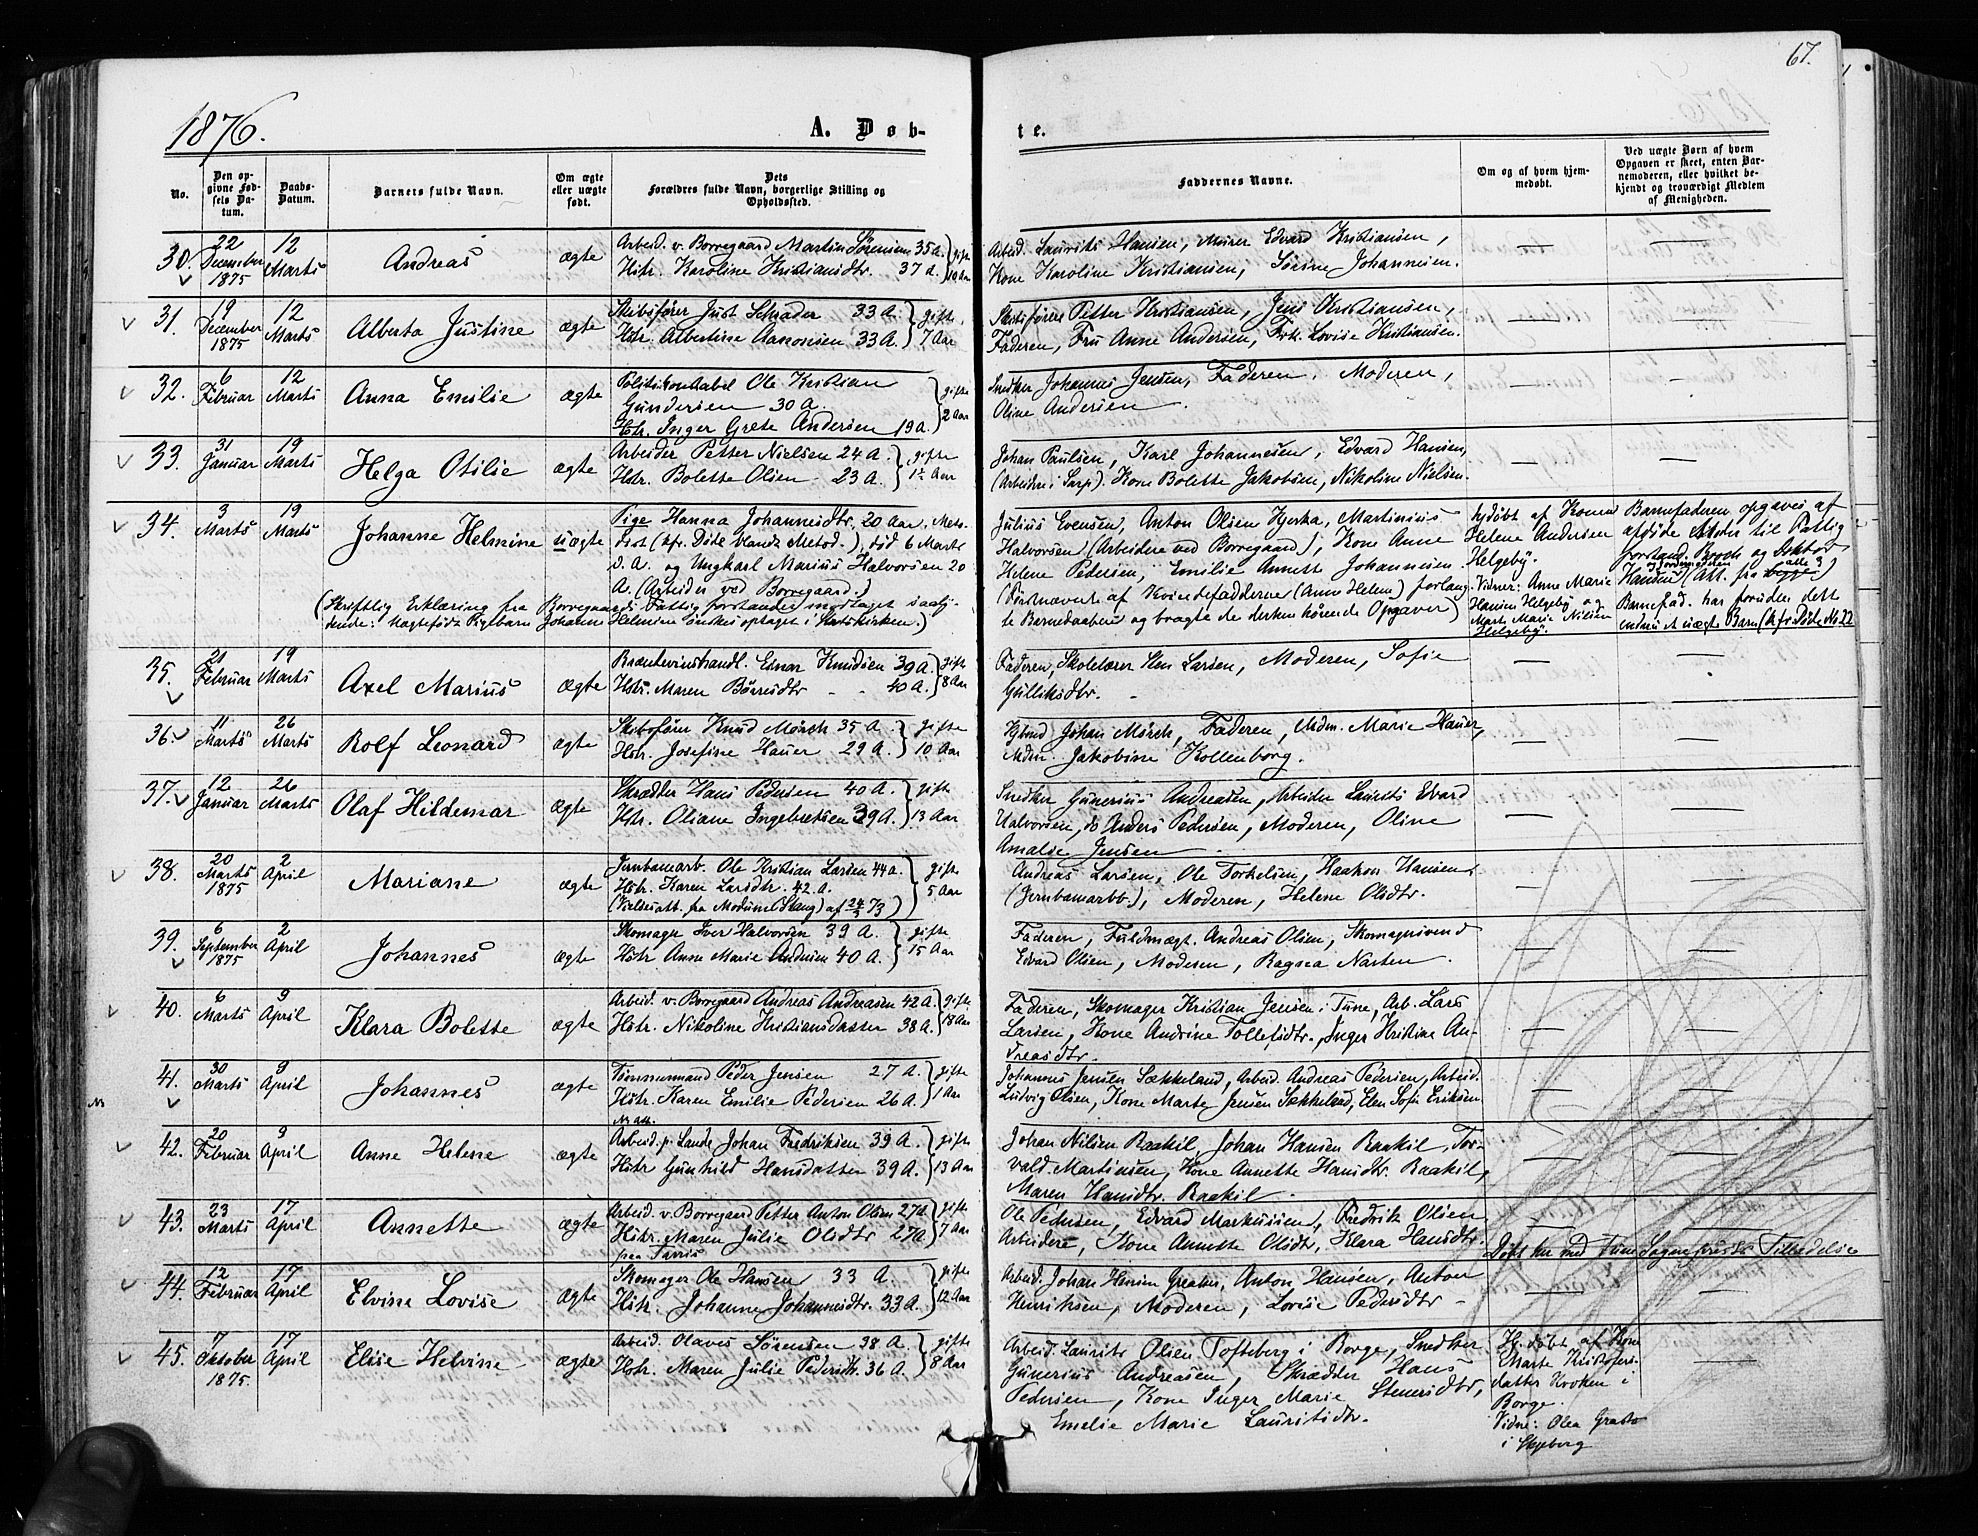 67.
1876.
A. Døb-
te.
No.
Den op-
givne Fød-
sels Da-
tum.
Daabs-
Datum.
Barnets fulde Navn.
Om ægte
eller uægte
født.
Dets
Forældres fulde Navn, borgerlige Stilling og
Opholdssted.
Faddernes Navne.
Om og af hvem hjem-
medøbt.
Ved uægte Børn af hvem
Opgaven er skeet, enten Bar-
nemoderen, eller hvilket be-
kjendt og troværdigt Medlem
af Menigheden.
30. 22 December 1875 12 Marts Andreas ægte
Arbeid. v. Borregaard Martin Sørensen 35 A. gifte
Hstr. Karoline Kristiansdtr. 37 A. 10 Aar
Arbeid. Laurits Hansen, Murer Edvard Kristiansen,
Kone Karoline Kristiansen, Sørine Johannesen.
31. 19 December 1875 12 Marts Alberta Justine ægte
Skibsfører Just Schrader 33 A. gifte
Hstr. Albertine Aanonsen 33 A. 7 Aar
Skibsførere Petter Kristiansen, Jens Kristiansen,
Faderen, Fru Anne Andersen, Frk. Lovise Kristiansen.
32. 6 Februar 12 Marts Anna Emilie ægte
Politikonstabel Ole Kristian
Gundersen 30 A. gifte
Hstr. Inger Grete Andersen 19 A. 2 Aar
Snedker Johannes Jensen, Faderen, Moderen,
Oline Andersen.
33. 31 Januar 19 Marts Helga Otilie ægte
Arbeider Petter Nielsen 24 A. gifte
Hstr. Bolette Olsen 23 A. 1½ Aar
Johan Paulsen, Karl Johannesen, Edvard Hansen,
(Arbeidere i Sarp). Kone Bolette Jakobsen, Nikoline Nielsen.
34. 3 Marts 19 Marts Johanne Helmine uægte
Pige Hanna Johannesdtr. 20 Aar, Meto-
dist (kfr. Døde blandt Metod.), død 6 Marts
d. A. og Ungkarl Marius Halvorsen 20
A. (Arbeider ved Borregaard.)
(Skriftlig Erklæring fra Borregaards Fattigforstander modtaget saaly-
dende: Uægtefødt Pigebarn Johanne Helmine ønskes optaget i Statskirken.)
Julius Evensen, Anton Olsen Kjerka, Martinius
Halvorsen (Arbeidere ved Borregaard), Kone Anne
Helene Pedersen, Emilie Annette Johannesen.
(Førstnævnte af Kvindefadderne (Anne Helene) forlang-
te Barnedaaben og bragte de derken hørende Opgaver)
hjdøbt af Kone
Helene Andersen
Helgeby.
Vidner: Anne Marie
Hansen Helgeby og
Marte Marie Nilsen
Helgeby.
Barnefaderen opgaves af
afdøde Moder til Fattig
forstand. Brock og Doktor
Hansen (Att. fra alle 3)
og Jordmoderen
Barnefad. har foruden dette
endnu et uægte Barn (kfr Døde No 22
35. 21 Februar 19 Marts Axel Marius ægte
Brændevinshandl. Edvar Knudsen 39 A. gifte
Hstr. Maren Børresdtr 40 A. 8 Aar
Faderen, Skolelærer Sten Larsen, Moderen, Sofie
Gulliksdtr.
36. 11 Marts 26 Marts Rolf Leonard ægte
Skibsfører Knud Mørch 35 A. gifte
Hstr. Josefine Hauer 29 A. 10 Aar
Kjbmd Johan Mørch, Faderen, Mdm. Marie Hauer,
Mdm. Jakobine Kollenborg.
37. 12 Januar 26 Marts Olaf Hildemar ægte
Skrædder Hans Pedersen 40 A. gifte
Hstr. Oliane Ingebretsen 39 A. 13 Aar
Snedker Gunerius Andreasen, Arbeider Laurits Edvard
Halvorsen, do Anders Pedersen, Moderen, Oline
Amalie Jensen.
38. 20 Marts 1875 2 April Mariane ægte
Jernbanearb. Ole Kristian Larsen 44 A. gifte
Hstr. Karen Larsdtr. 42 A. 5 Aar
(Vielsesatt. fra Modum (Stang) af 24/3 73)
Andreas Larsen, Ole Torkelsen, Haakon Hansen
(Jernbanearbb.), Moderen, Helene Olsdtr.
39. 6 September 1875 2 April Johannes ægte
Skomager Iver Halvorsen 39 A. gifte
Hstr Anne Marie Andersen 40 A. 15 Aar
Faderen, Fuldmægt. Andreas Olsen, Skomagersvend
Edvard Olsen, Moderen, Ragna Narten.
40. 6 Marts 9 April Klara Bolette ægte
Arbeid. v. Borregaard Andreas Andreasen 42 A. gifte
Hstr. Nikoline Kristiansdatter 38 A. 18 Aar
Faderen, Skomager Kristian Jensen i Tune, Arb. Lars
Larsen, Kone Andrine Tollefsdtr., Inger Kristine An-
dreasdtr.
41. 30 Marts 9 April Johannes ægte
Tømmermand Peder Jensen 27 A. gifte
Hstr. Karen Emilie Pedersen 26 A. 1 Aar
Johannes Jensen Sækkelund, Arbeid. Andreas Pedersen, Arbeid.
Ludvig Olsen, Kone Marte Jensen Sækkelund, Elen Sofie Eriksen
42. 20 Februar 9 April Anne Helene ægte
Arbeid. p. Lande Johan Fredriksen 39 A. gifte
Hstr Gunhild Hansdatter 39 A. 13 Aar
Johan Nilsen Raakil, Johan Hansen Raakil, Tor-
vald Martinsen, Kone Annette Hansdtr. Raakil,
Maren Hansdtr. Raakil.
43. 23 Marts 17 April Annette ægte
Arbeid. v. Borregaard Petter Anton Olsen 27 A. gifte
Hstr. Maren Julie Olsdtr 27 A. 7 Aar
Ole Pedersen, Edvard Markussen, Fredrik Olsen
Arbeidere, Kone Annette Olsdtr, Klara Hansdtr.
Døbt her med Tune Sognepræsts Tilladelse
44. 12 Februar 17 April Elvine Lovise ægte
Skomager Ole Hansen 33 A. gifte
Hstr. Johanne Johannesdtr. 33 A. 12 Aar
Arbeid. Johan Hansen Greaker, Anton Hansen, Anton
Henriksen, Moderen, Lovise Pedersdtr
45. 7 Oktober 1875. 17 April Elise Helvine ægte
Arbeid. Olaves Sørensen 38 A. gifte
Hstr. Maren Julie Pedersdtr. 36 A. 8 Aar
Arbeid. Laurits Olsen Tofteberg i Borge, Snedker
Gunerius Andreasen, Skrædder Hans
Pedersen, Kone Inger Marie Stenersdtr,
Emelie Marie Lauritsdtr.
Hj. døbt af Kone
Marte Kristofers-
datter Kroken i
Borge.
Vidne: Olea
i Skjeberg